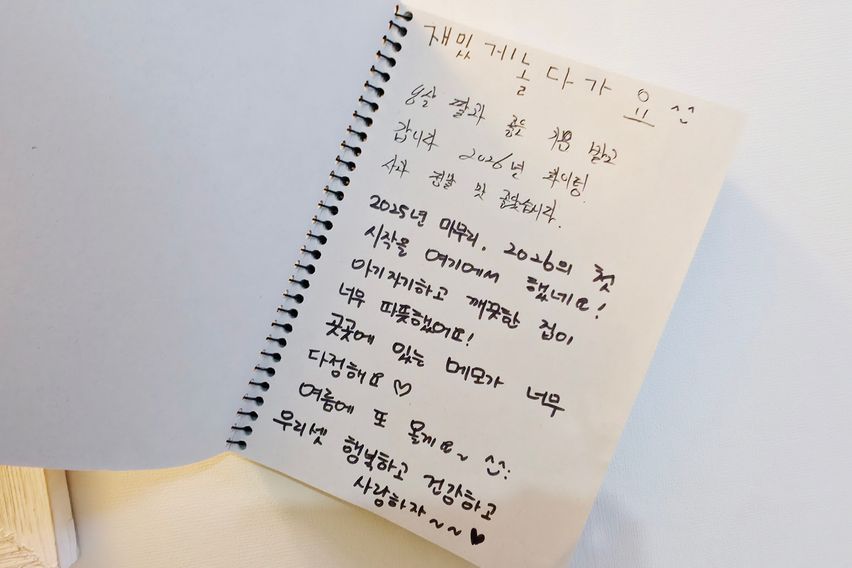 재밌게 놀다가요 ^^
9살 딸과 좋은 기운 받고
갑니다 2026년 화이팅.
사과 정말 맛 좋았습니다.
2025년 마무리, 2026의 첫
시작을 여기에서 했네요!
아기자기하고 깨끗한 집이
너무 따뜻했어요!
곳곳에 있는 메모가 너무
다정해요 ♡
여름에 또 올게요~ ^^:
우리셋 행복하고 건강하고
사랑하자~~♥